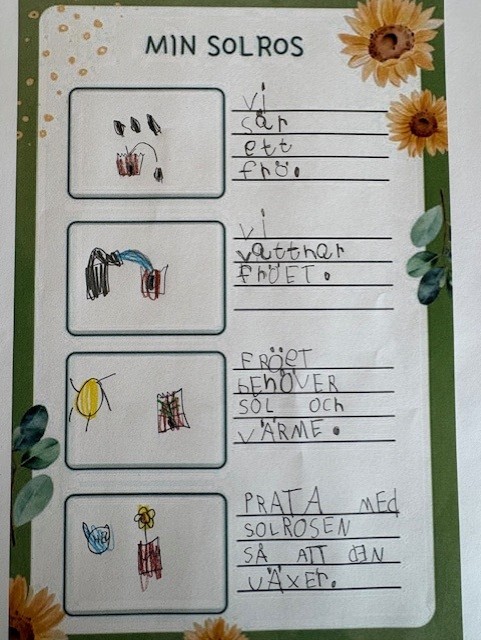 MIN SOLROS
vi
sår
ett
frö.
vi
vattnar
fröET.
FRÖET
bEhÖVER
SOL OCh
VÄRME.
HEJ
PRATA MEd
SOLROSEN
SÅ ATT dEN
VÄXEr.